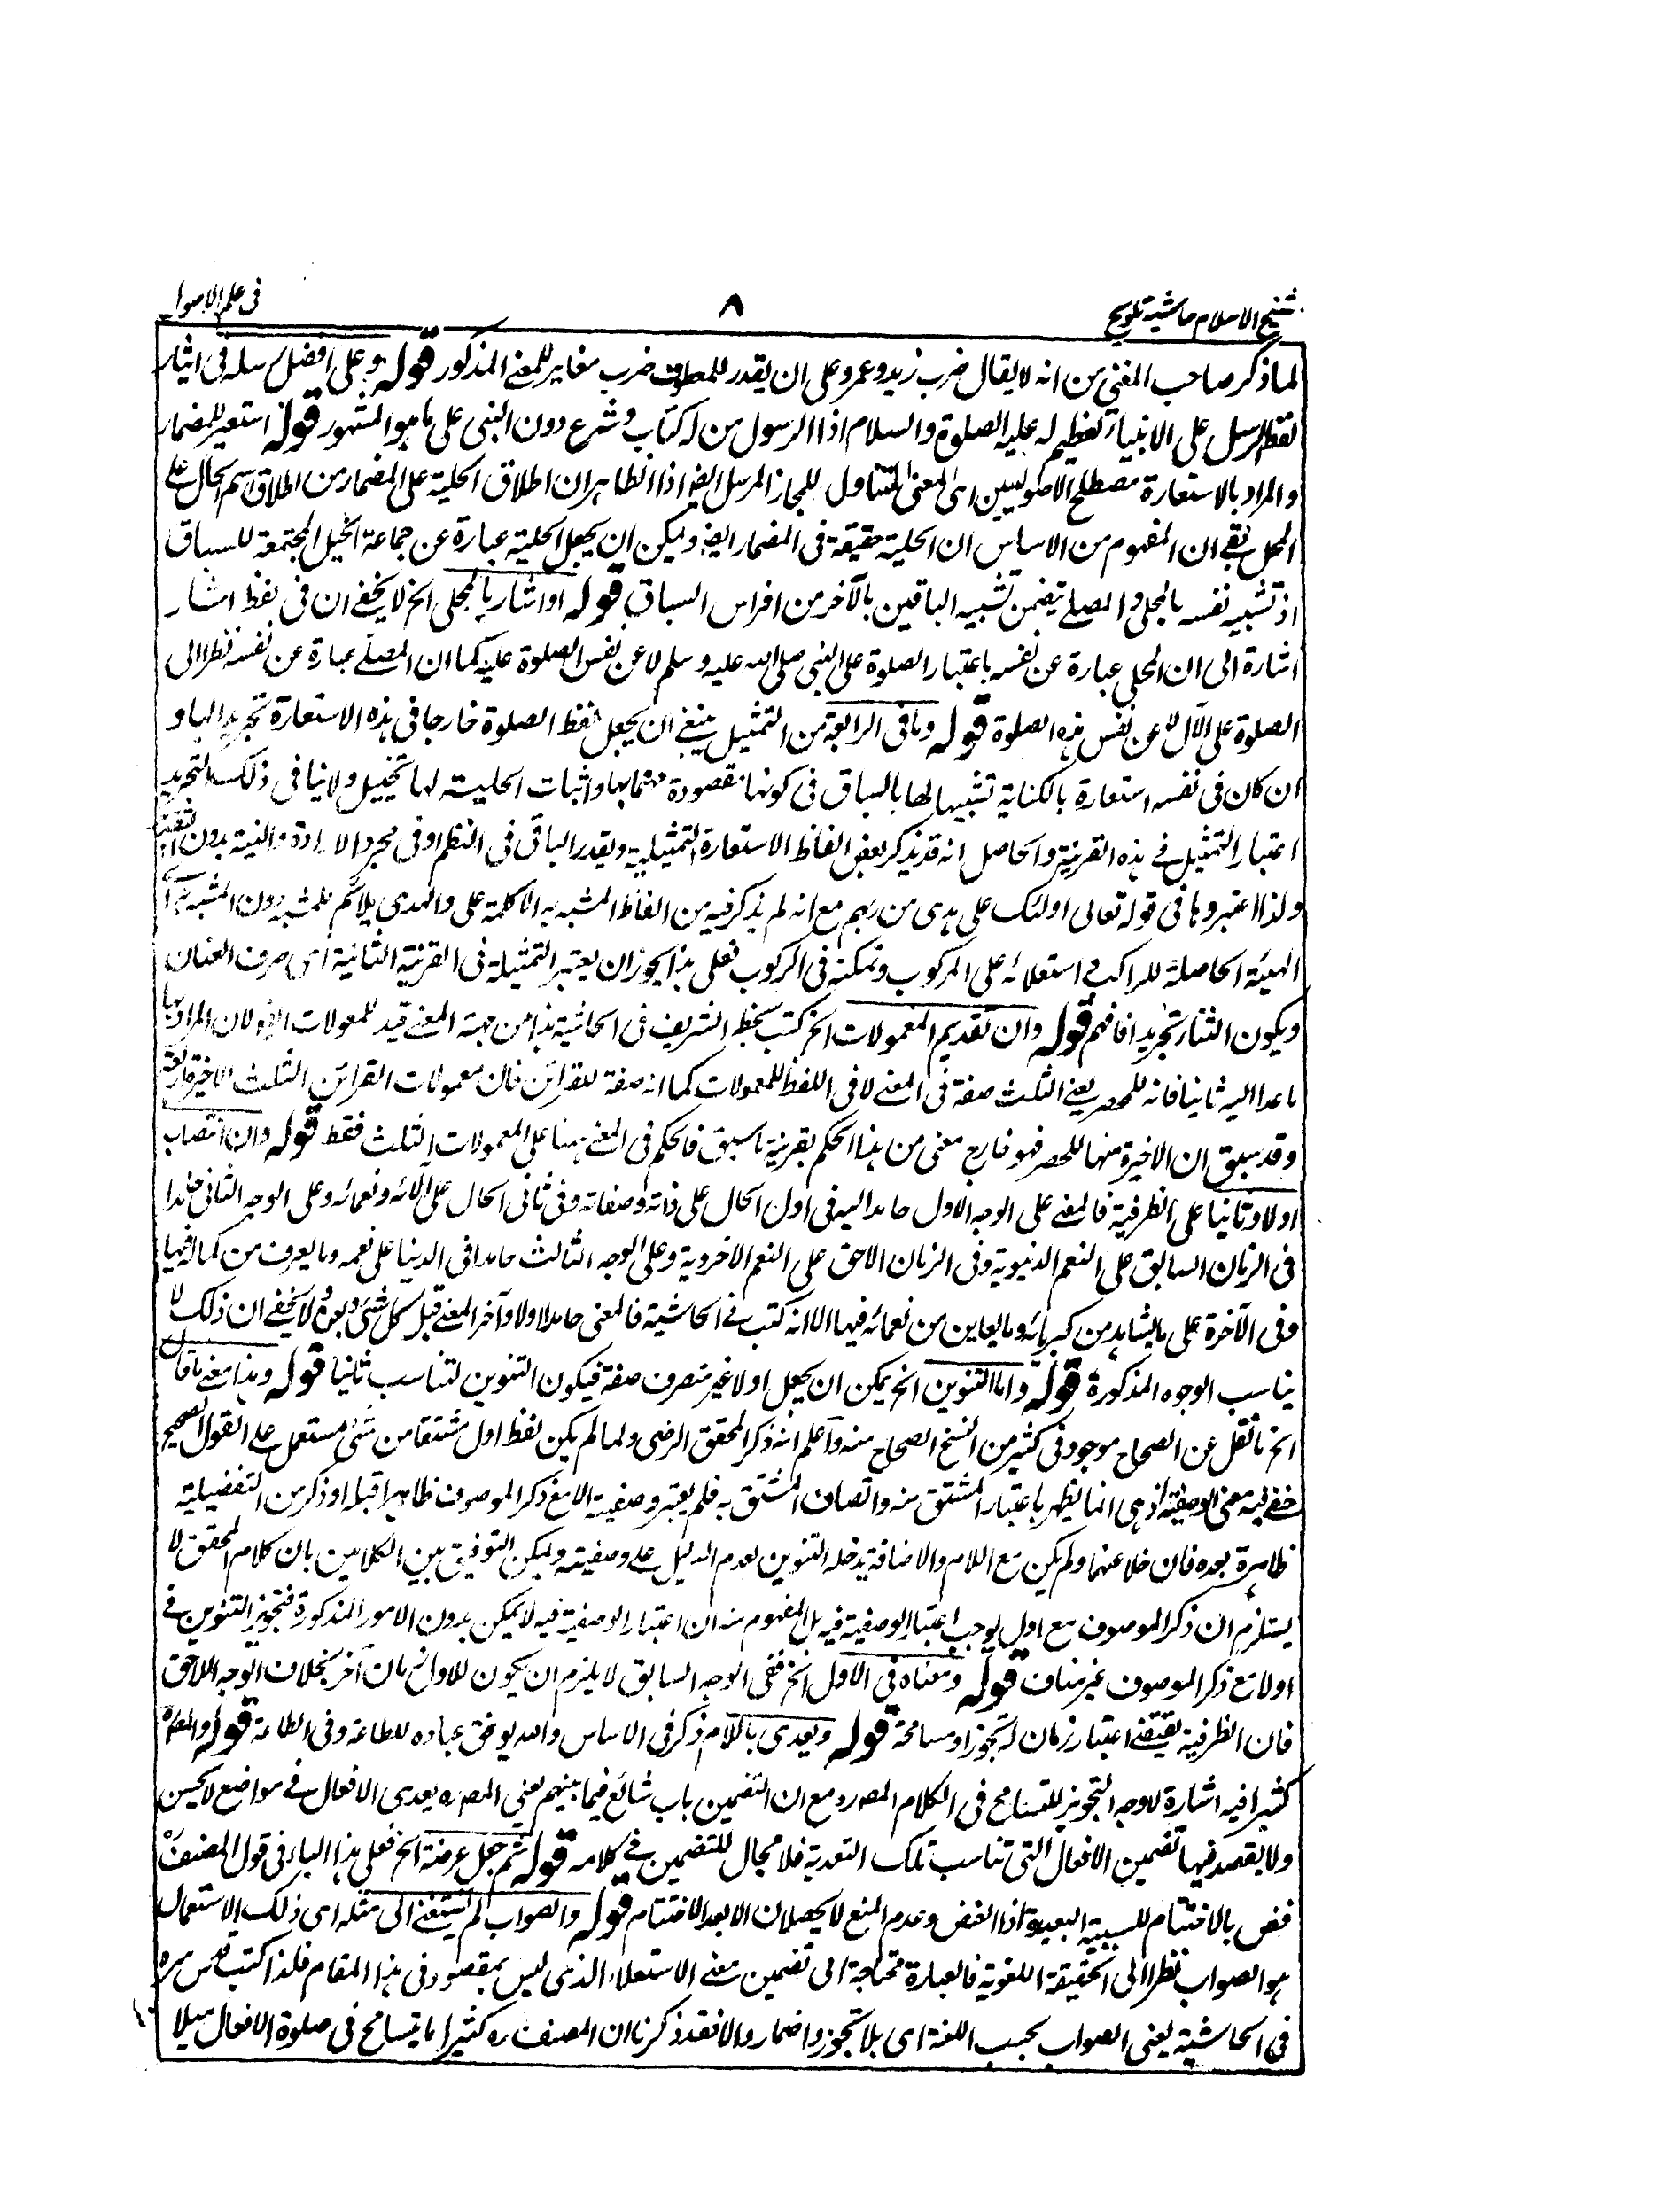 شيخ الاسلام حاشية تلويح
٨
فى علم الاصول
لما ذكر صاحب المغنى من انه لا يقال ضرب زيد وعمرو على ان يقدر للمعطوف ضرب مغاير للمعنے المذكور قوله وعلى افضل رسله فى ايثار
لفظ الرسل على الانبياء تعظيم له عليه الصلوة والسلام اذ الرسول من له كتاب وشرع دون النبى على ما هو المشهور قوله استعير للمضمار
والمراد بالاستعارة مصطلح الاصوليين اى المعنى المتناول للمجاز المرسل ايضا اذ الظاهر ان اطلاق الحلية على المضمار من اطلاق اسم الحال علے
المحل بقى ان المفهوم من الاساس ان الحلبة حقيقة فى المضمار ايضا ويمكن ان يجعل الحلبة عبارة عن جماعة الخيل المجتمعة للسباق
اذ تشبيه نفسه بالمجلى والمصلے يتضمن تشبيه الباقين بالآخر من افراس السباق قوله او اشار بالمجلى الخ لا يخفے ان فى لفظ اشار
اشارة الى ان المجلى عبارة عن نفسه باعتبار الصلوة على النبى صلى الله عليه وسلم لا عن نفس الصلوة عليه كما ان المصلّے عبارة عن نفسه نظرا الى
الصلوة على الآل لا عن نفس هذه الصلوة قوله وما فى الرابعة من التمثيل ينبغے ان يجعل لفظ الصلوة خارجا فى هذه الاستعارة تجريد لها و
ان كان فى نفسه استعارة بالكناية تشبيها لها بالسباق فى كونها مقصودة مهتما بها واثبات الحلبة لها تخييل ولا ينافى ذلك التجريد
اعتبار التمثيل فے هذه القرينة والحاصل انه قد يذكر بعض الفاظ الاستعارة التمثيلية ويقدر الباقى فى النظم او فى مجرد الارادة والنية بدون
ولذا اعتبروها فى قوله تعالى اولئك على هدى من ربهم مع انه لم يذكر فيه من الفاظ المشبه به الا كلمة على والهدى يلائم للمشبه دون المشبه به
الهيئة الحاصلة للراكب فى استعلائه على المركوب وتمكنه فى الركوب فعلى هذا يجوز ان يعتبر التمثيلة فى القرينة الثانية اى صرف العنان
ويكون الثناء تجريدا فافهم قوله وان تقديم المعمولات الخ كتب بخطه الشريف فى الحاشية هذا من جهة المعنے قيد للمعمولات لان المراد بها
ما عدا اليه ثانيا فانه للحصر يعنے الثلث صفة فى المعنے لا فى اللفظ للمعمولات كما انه صفة للقرائن فان معمولات القرائن الثلث الاخيرة
وقد سبق ان الاخيرة منها للحصر فهو خارج معنى من هذا الحكم بقرينة ما سبق فالحكم فى المعنے هنا على المعمولات الثلث فقط قوله وان انتصاب
اولا وثانيا على الظرفية فالمعنے على الوجه الاول حامدا اليه فى اول الحال على ذاته وصفاته وفى ثانى الحال على آلائه ونعمائه وعلى الوجه الثانى حامدا
فى الزمان السابق على النعم الدنيوية وفى الزمان الاحق على النعم الاخروية وعلى الوجه الثالث حامدا فى الدنيا على نعمه وما يعرف من كماله فيها
وفى الآخرة على ما يشاهد من كبريائه وما يعاين من نعمائه فيها الا انه كتب فے الحاشية فالمعنى حامدا اولا وآخرا لمعنے قبل كل شئ وبعده ولا يخفے ان ذلك لا
يناسب الوجوه المذكورة قوله واما التنوين الخ يمكن ان يجعل اولا غير منصرف صفة فيكون التنوين لتناسب ثانيا قوله وهذا معنے ما قال
الخ ما نقل عن الصحاح موجود فى كثير من النسخ الصحاح منه واعلم انه ذكر المحقق الرضى ولما لم يكن لفظ اول مشتقا من شئ مستعمل علے القول الصحيح
خفے فيه معنى الوصفية اذ هى انما يظهر باعتبار المشتق منه واتصاف المشتق به فلم يعتبر وصفيته الا مع ذكر الموصوف ظاهرا قبله او ذكر من التفضيلية
ظاهرة بعده فان خلا عنهما ولم يكن مع اللام والاضافة يدخله التنوين لعدم الدليل علے وصفيته ويمكن التوفيق بين الكلامين بان كلام المحقق لا
يستلزم ان ذكر الموصوف مع اول يوجب اعتبار الوصفية فيه بل المفهوم منه ان اعتبار الوصفية فيه لا يمكن بدون الامور المذكورة فتجويز التنوين فے
اولا مع ذكر الموصوف غير مناف قوله ومعناه فى الاول الخ ففى الوجه السابق لا يلزم ان يكون للاوان مان آخر بخلاف الوجه اللاحق
فان الظرفية يقتضے اعتبار زمان له تجوزا ومسامحة قوله ويعدى باللام ذكر فى الاساس والله يوفق عباده للطاعة وفى الطاعة قوله والمصره
كثيرا فيه اشارة لاوجه التجويز للتسامح فى الكلام المصره ومع ان التضمين باب شائع فيما بينهم يعنى المصره يعدى الافعال فے مواضع لا يحسن
ولا يقصد فيها تضمين الافعال التى تناسب تلك التعدية فلا مجال للتضمين فے كلامه قوله ثم جعل عرضة الخ فعلى هذا الباء فى قول المصنف
فض بالاختتام للسببية البعيدة اذ الغض وعدم المنع لا يحصلان الا بعد الاختتام قوله والصواب لم يستغنے الى مثله اى ذلك الاستعمال
هو الصواب نظرا الى الحقيقة اللغوية فالعبارة محتاجة الى تضمين معنے الاستعلاء الذى ليس بمقصود فى هذا المقام فلذا كتب قدس سره
فى الحاشية يعنى الصواب بحسب اللغة اى بلا تجوز واضمار والا فقد ذكرنا ان المصنف ره كثيرا ما يتسامح فى صلوة الافعال ميلا